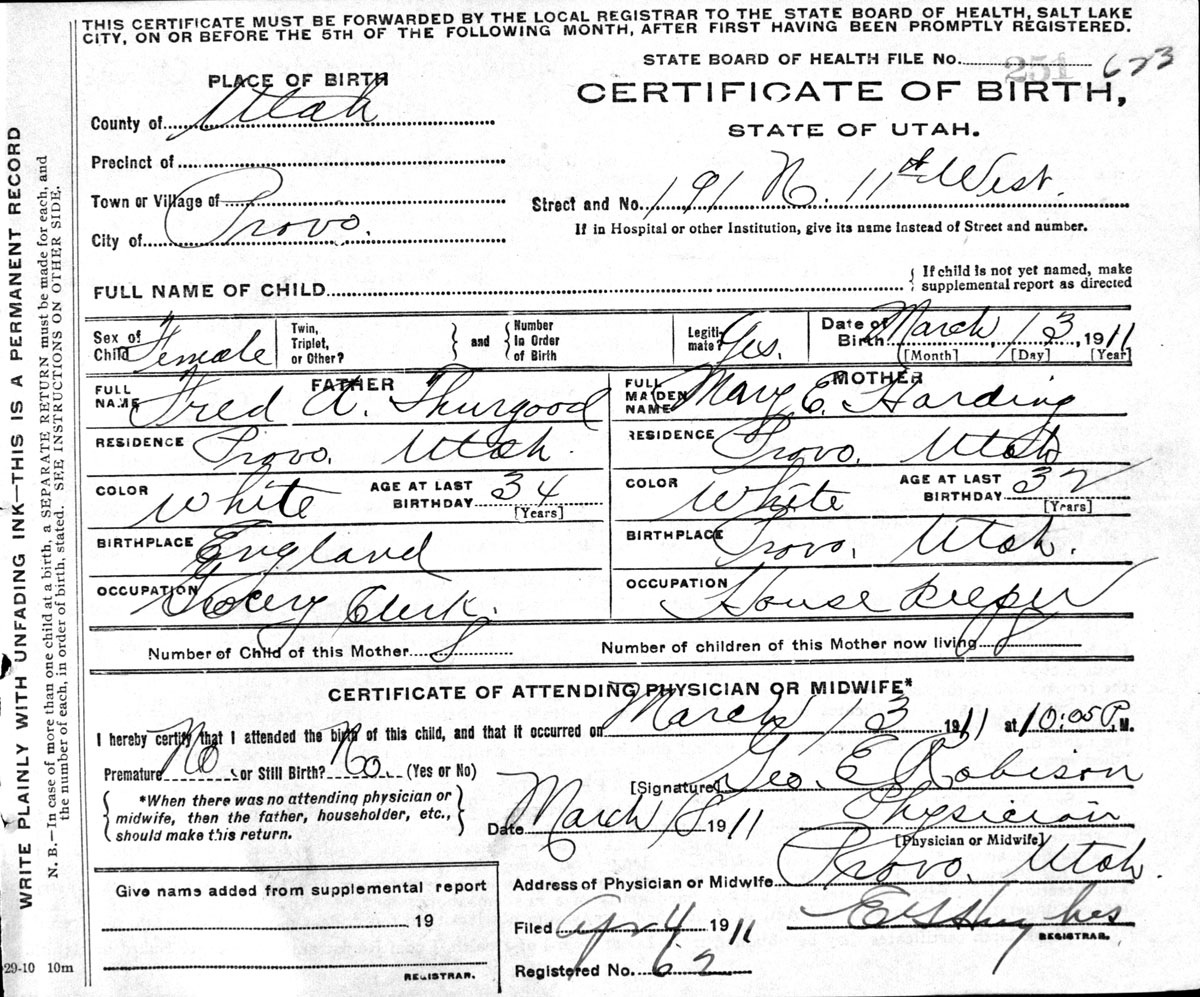 THIS CERTIFICATE MUST BE FORWARDED BY THE LOCAL REGISTRAR TO THE STATE BOARD OF HEALTH, SALT LAKE
CITY, ON OR BEFORE THE 5TH OF THE FOLLOWING MONTH, AFTER FIRST HAVING BEEN PROMPTLY REGISTERED.
WRITE PLAINLY WITH UNFADING INK—THIS IS A PERMANENT RECORD
N. B.—In case of more than one child at a birth, a SEPARATE RETURN must be made for each, and
the number of each, in order of birth, stated. SEE INSTRUCTIONS ON OTHER SIDE.
STATE BOARD OF HEALTH FILE No. 251 623
PLACE OF BIRTH
CERTIFICATE OF BIRTH,
STATE OF UTAH.
County of Utah
Precinct of
Town or Village of
City of Provo.
Street and No. 191 N. 11th West.
If in Hospital or other Institution, give its name instead of Street and number.
FULL NAME OF CHILD
{ If child is not yet named, make
supplemental report as directed
Sex of Child Female
Twin, Triplet, or Other?
and
Number In Order of Birth
Legiti-mate? Yes.
Date of Birth March, 13, 1911
[Month] [Day] [Year]
FATHER
FULL NAME Fred A. Thurgood
MOTHER
FULL MAIDEN NAME Mary E. Harding
RESIDENCE Provo. Utah.
RESIDENCE Provo. Utah
COLOR White AGE AT LAST BIRTHDAY 34 [Years]
COLOR White AGE AT LAST BIRTHDAY 32 [Years]
BIRTHPLACE England
BIRTHPLACE Provo, Utah.
OCCUPATION Grocery Clerk.
OCCUPATION House Keeper
Number of Child of this Mother 8
Number of children of this Mother now living 8
CERTIFICATE OF ATTENDING PHYSICIAN OR MIDWIFE*
I hereby certify that I attended the birth of this child, and that it occurred on March 13 1911 at 10:05 P. M.
Premature No or Still Birth? No. (Yes or No)
[Signature] Geo. E Robison
{ *When there was no attending physician or
midwife, then the father, householder, etc.,
should make this return. }
Date March 18 1911
Physician
[Physician or Midwife]
Address of Physician or Midwife Provo, Utah.
Give name added from supplemental report
19
REGISTRAR.
Filed Apr 4 1911
E G Hughes
REGISTRAR.
Registered No. 62
29-10 10m